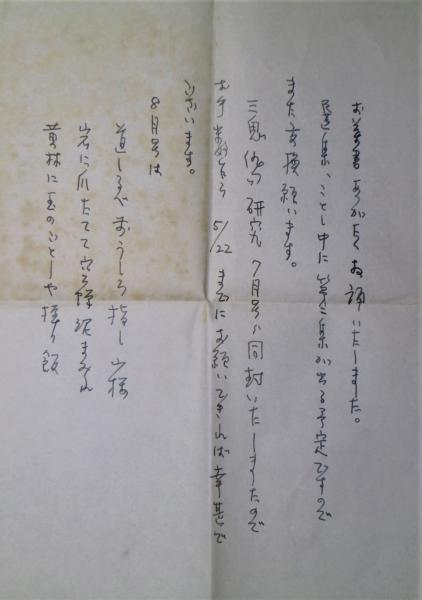 お葉書ありがたくお読いたしました。
選集、ことし中に第二集が出る予定ですので
また交換願います。
三鬼俳句研究7月号に同封いたしましたので
お手数乍ら 5/22 までにお願いできれば幸甚で
ございます。
8月号は
道しるべ前うしろ指し山桜
岩に爪たてて空 泥まみれ
黄林に玉のごとしや握り飯